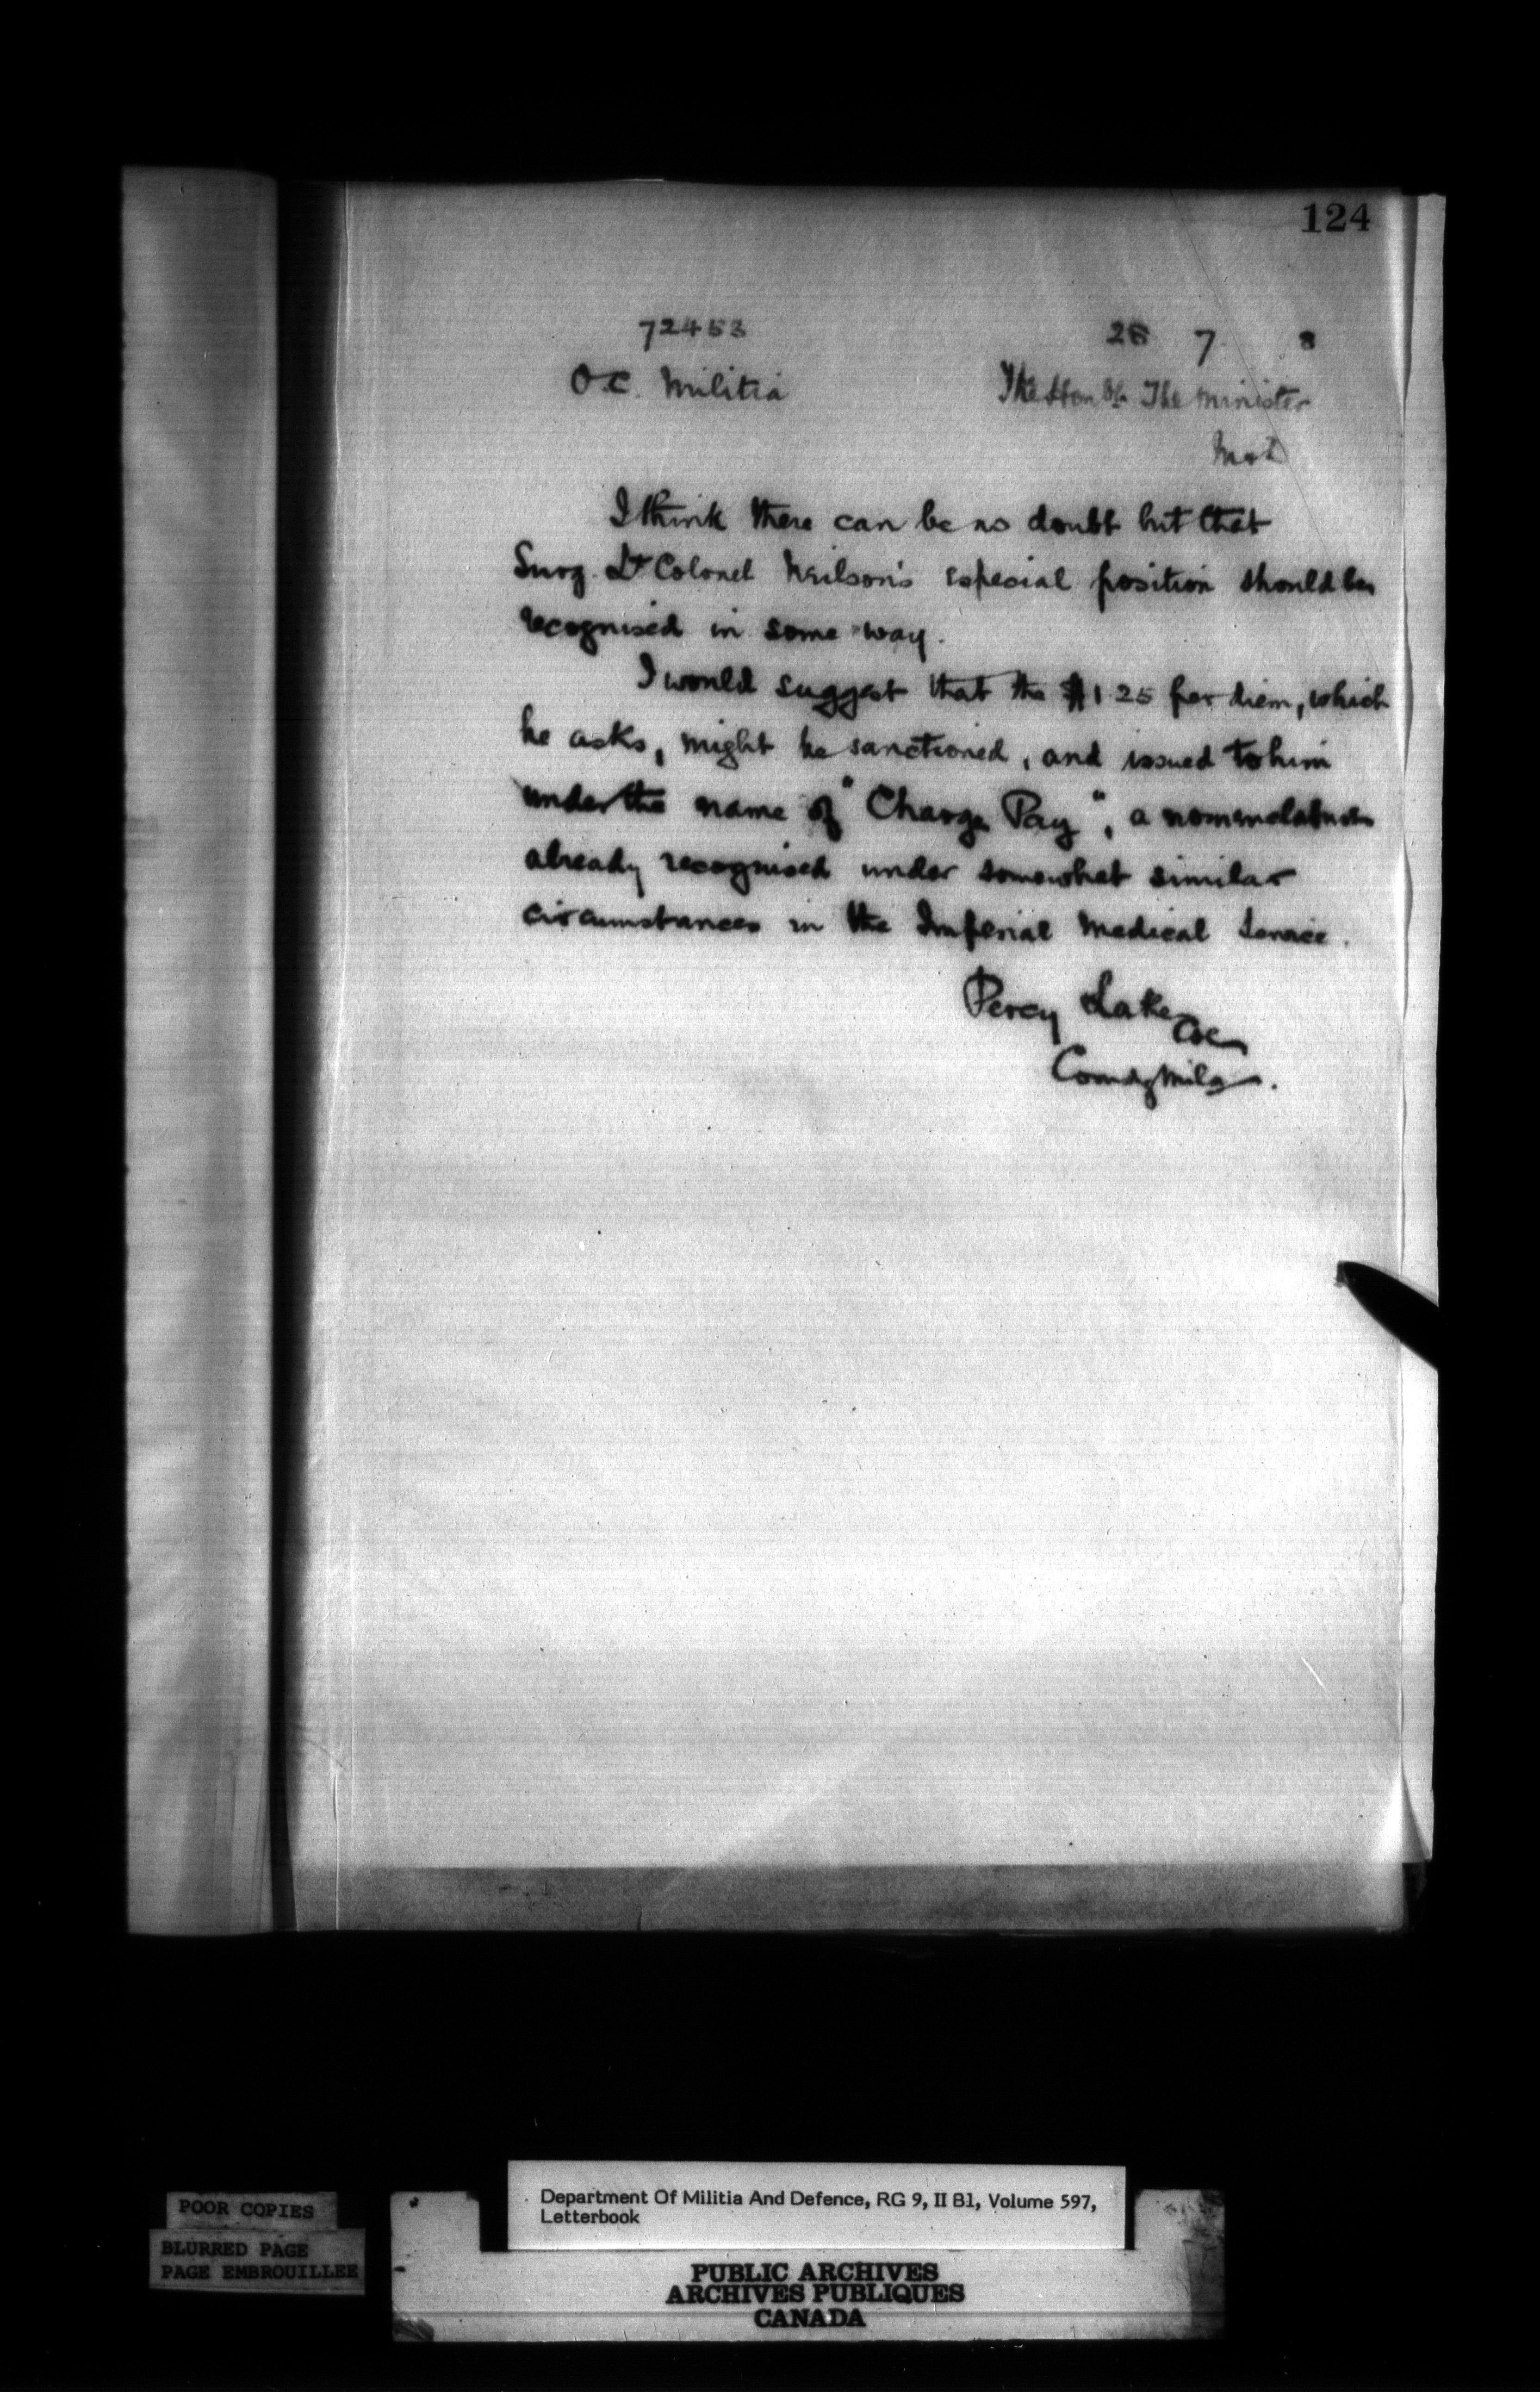 124
72453 28 7 8
O.C. Militia The Honble The Minister
M & D
I think there can be no doubt but that
Surg. Lt Colonel Neilson's especial position should be
recognised in some way.
I would suggest that the $1.25 per diem, which
he asks, might be sanctioned, and issued to him
under the name of "Charge Pay", a nomenclature
already recognised under somewhat similar
circumstances in the Imperial Medical Service.
Percy Lake Col
Comdg Mila.
POOR COPIES
BLURRED PAGE
PAGE EMBROUILLEE
Department Of Militia And Defence, RG 9, II B1, Volume 597,
Letterbook
PUBLIC ARCHIVES
ARCHIVES PUBLIQUES
CANADA